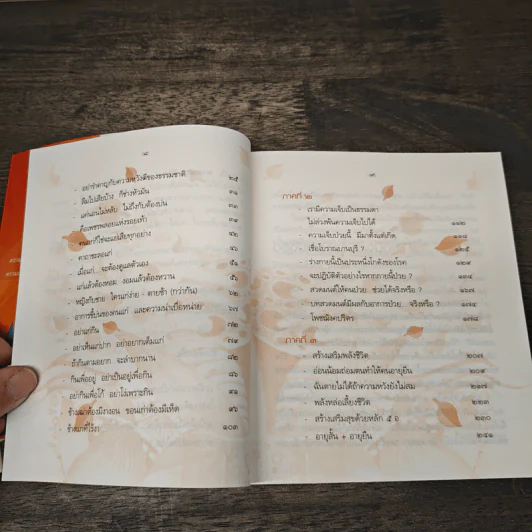 - อย่ารำคาญกับความหวังดีของธรรมชาติ ๒๕
- ลืมไปเสียบ้าง ก็ช่างหัวมัน ๓๑
- แค่นอนไม่หลับ ไม่ถึงกับต้องบ่น
- คาถาชะลอแก่
- เมื่อแก่ จะต้องดูแลตัวเอง
- แก่แล้วต้องหอม งอมแล้วต้องหวาน
- หญิงกับชาย ใครแก่ง่าย - ตายช้า (กว่ากัน) ๖๒
- อาการขี้บ่นของคนแก่ และความน่าเบื่อหน่าย
- อย่าแก่กิน ๗๒
- อย่าเห็นแก่ปาก อย่าอยากเต็มแก่
- ถ้ากินตามอยาก จะลำบากนาน
- กินเพื่ออยู่ อย่าเป็นอยู่เพื่อกิน
- อย่ากินเพื่อโก้ อย่าโง่เพราะกิน ๙๑
- ช้างแก่ต้องมีงางอน ขอนแก่ต้องมีเห็ด ๙๖
- ๑๐๓
ภาคที่ ๒
- เรามีความเจ็บเป็นธรรมดา
ไม่ล่วงพ้นความเจ็บไปได้ ๑๑๒
- ความเจ็บป่วยนี้ มีมาตั้งแต่เกิด ๑๑๘
- เชื้อโบราณบานบุรี ? ๑๒๕
- ร่างกายนี้เป็นประหนึ่งโกดังของโรค ๑๔๑
- จะปฏิบัติตัวอย่างไรหากกายนี้ป่วย ?
- สวดมนต์ให้คนป่วย ช่วยได้จริงหรือ ? ๑๖๗
- บทสวดมนต์มีผลกับอาการป่วย จริงหรือ ? ๑๗๔
- โพชฌังคปริตร ๑๗๘
ภาคที่ ๓
- สร้างเสริมพลังชีวิต ๒๐๗
- อ่อนน้อมถ่อมตนทำให้คนอายุยืน ๒๐๙
- ฉันตายไม่ได้ถ้าความหวังยังไม่สม ๒๑๗
- พลังหล่อเลี้ยงชีวิต ๒๒๓
- สร้างเสริมสุขด้วยหลัก ๕ อ ๒๓๐
- อายุสั้น + อายุยืน ๒๔๑